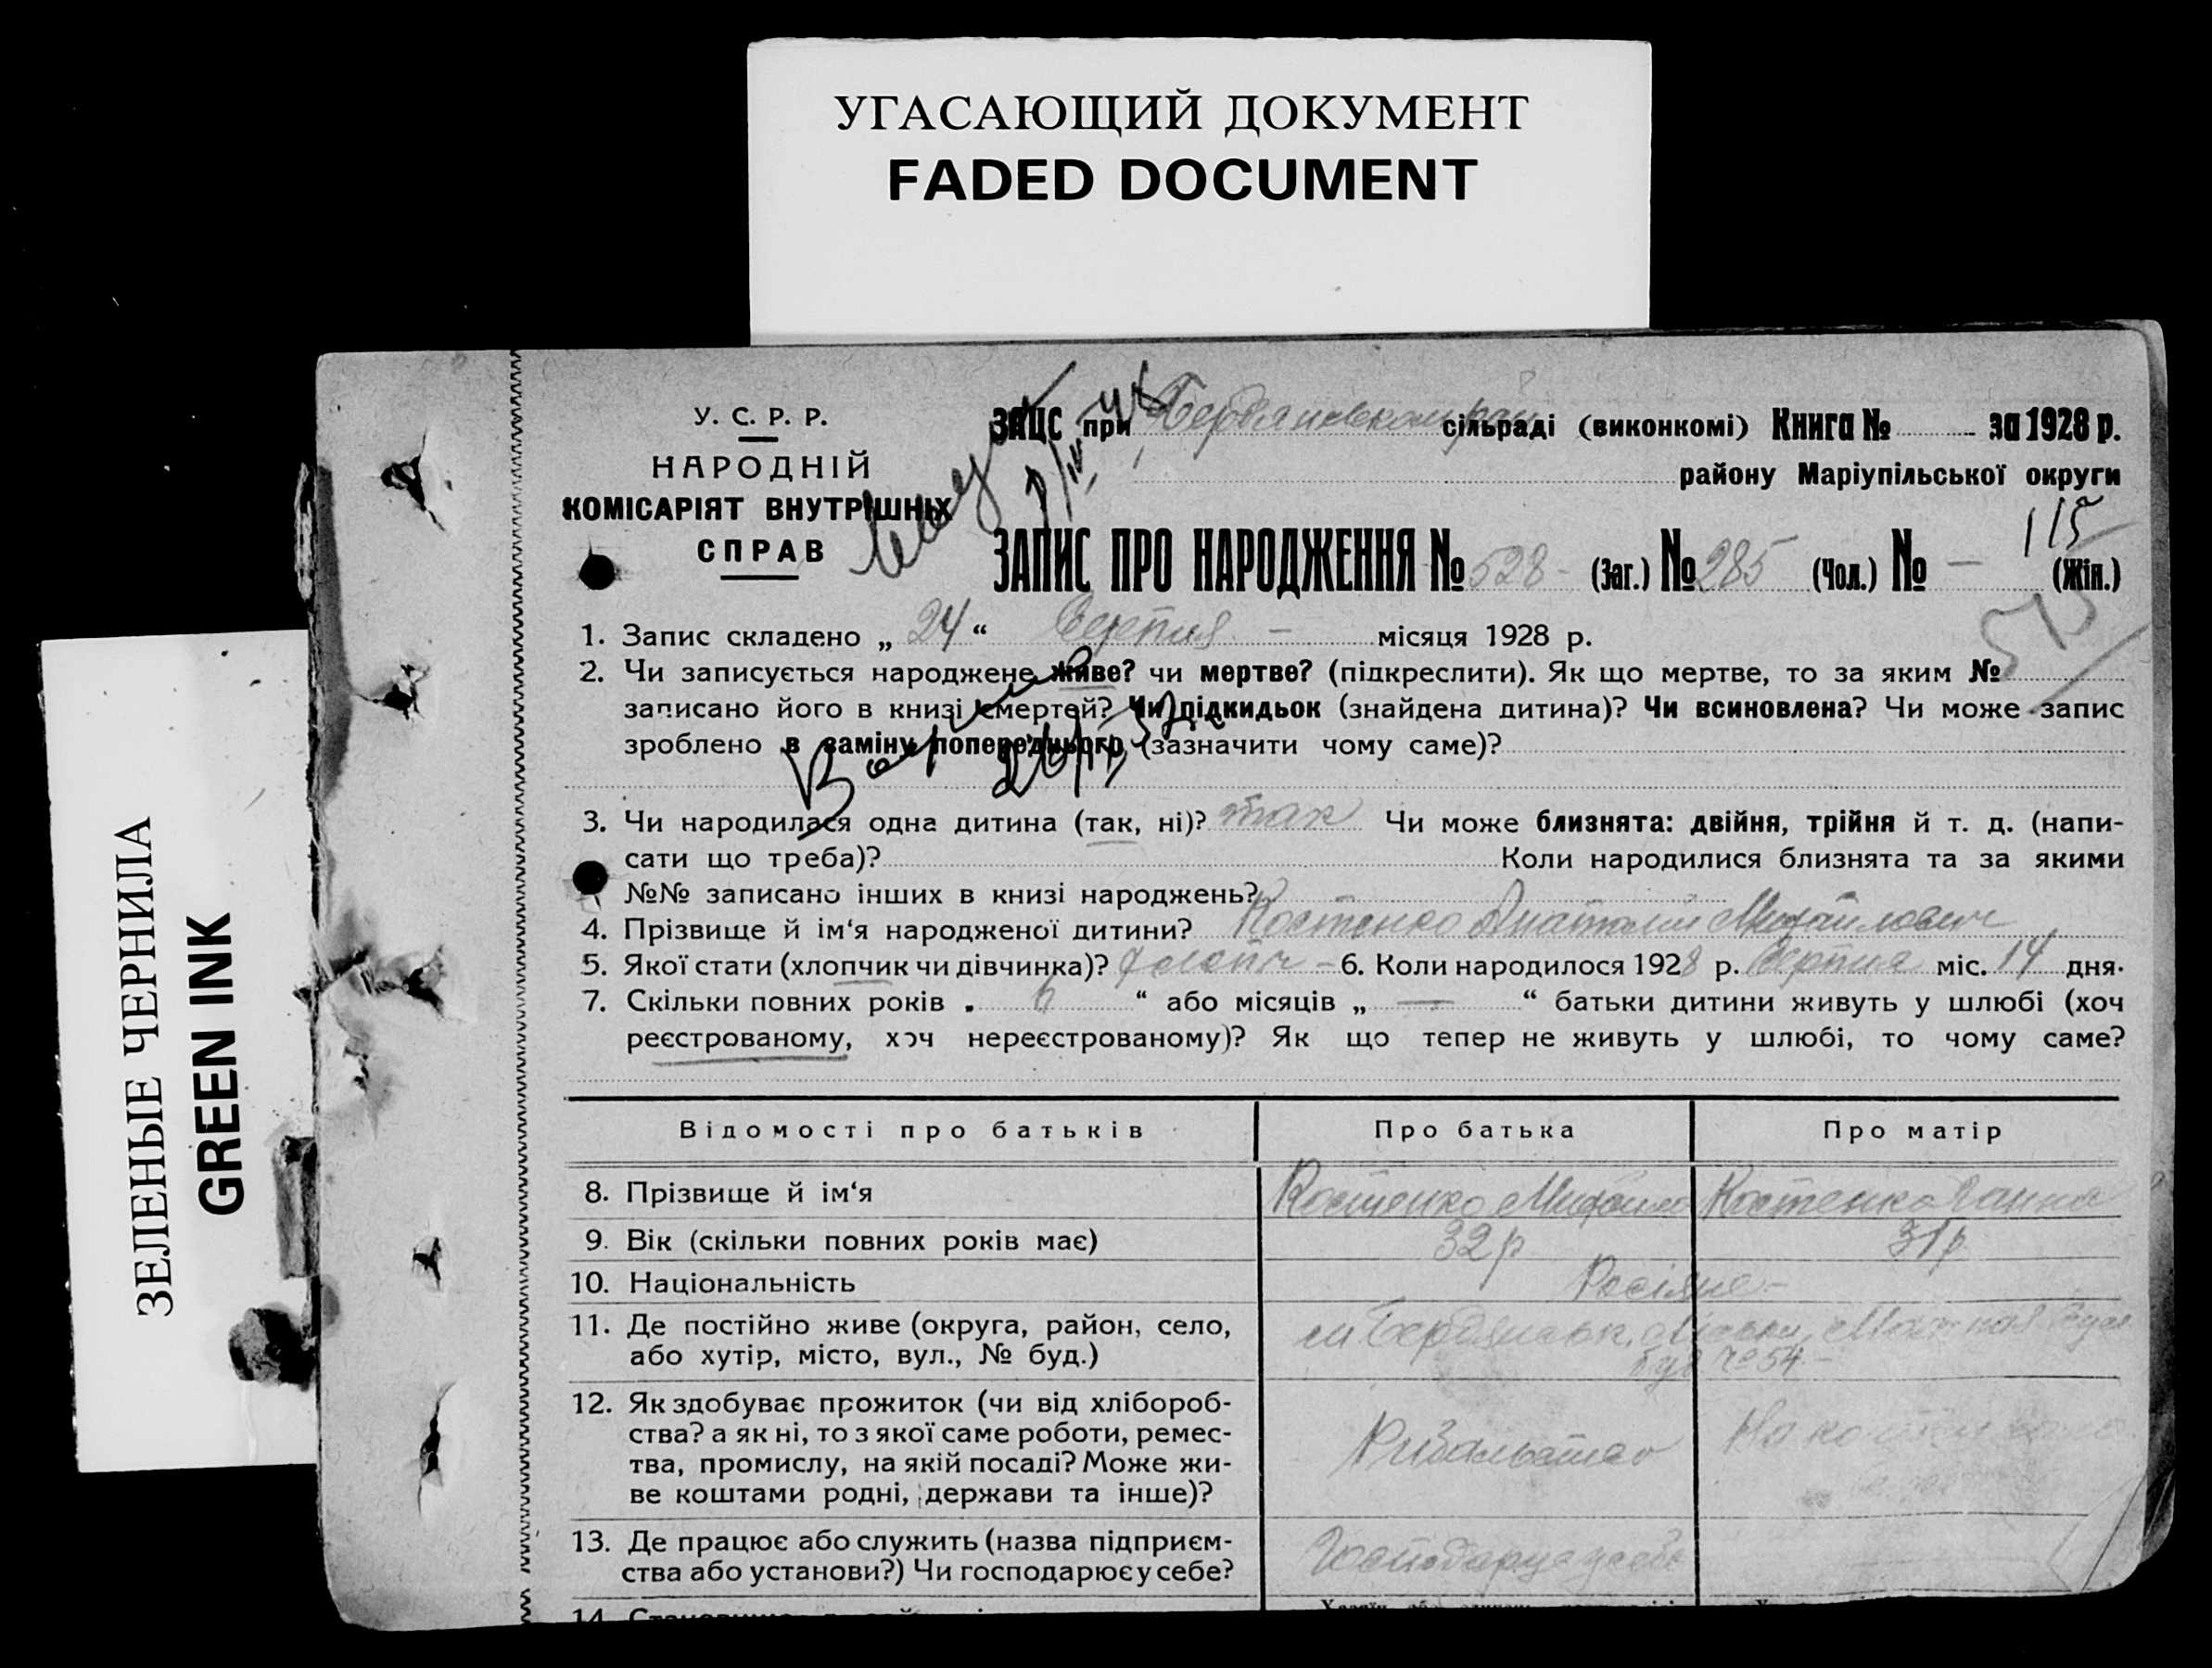 УГАСАЮЩИЙ ДОКУМЕНТ
FADED DOCUMENT
ЗЕЛЕНЫЕ ЧЕРНИЛА
GREEN INK
У. С. Р. Р.
НАРОДНІЙ
КОМІСАРІЯТ ВНУТРІШНІХ
СПРАВ
ЗАЦС при сільраді (виконкомі) Книга № за 1928 р.
району Маріупільської округи
115
ЗАПИС ПРО НАРОДЖЕННЯ № 528 - (Заг.) № 285 (Чол.) № — (Жін.)
1. Запис складено „ 24 “ Серпня - місяця 1928 р.
2. Чи записується народжене живе? чи мертве? (підкреслити). Як що мертве, то за яким №
записано його в книзі смертей? Чи підкидьок (знайдена дитина)? Чи всиновлена? Чи може запис
зроблено в заміну попереднього (зазначити чому саме)?
3. Чи народилася одна дитина (так, ні)? так Чи може близнята: двійня, трійня й т. д. (напи-
сати що треба)? Коли народилися близнята та за якими
№№ записано інших в книзі народжень?
4. Прізвище й ім‘я народженої дитини? Костенко Анатолий Михайлович
5. Якої стати (хлопчик чи дівчинка)? - 6. Коли народилося 1928 р. Серпня міс. 14 дня.
7. Скільки повних років „ 6 “ або місяців „ — “ батьки дитини живуть у шлюбі (хоч
реєстрованому, хоч нереєстрованому)? Як що тепер не живуть у шлюбі, то чому саме?
Відомості про батьків Про батька Про матір
8. Прізвище й ім‘я Костенко Михайло Костенко Ганна
9. Вік (скільки повних років має) 32 р 31 р
10. Національність Росіяне -
11. Де постійно живе (округа, район, село,
або хутір, місто, вул., № буд.)
м Бердянськ,
буд № 54 -
12. Як здобуває прожиток (чи від хлібороб-
ства? а як ні, то з якої саме роботи, ремес-
тва, промислу, на якій посаді? Може жи-
ве коштами родні, держави та інше)?
Рибальство
13. Де працює або служить (назва підприєм-
ства або установи?) Чи господарює у себе?
Господарує у себе
14